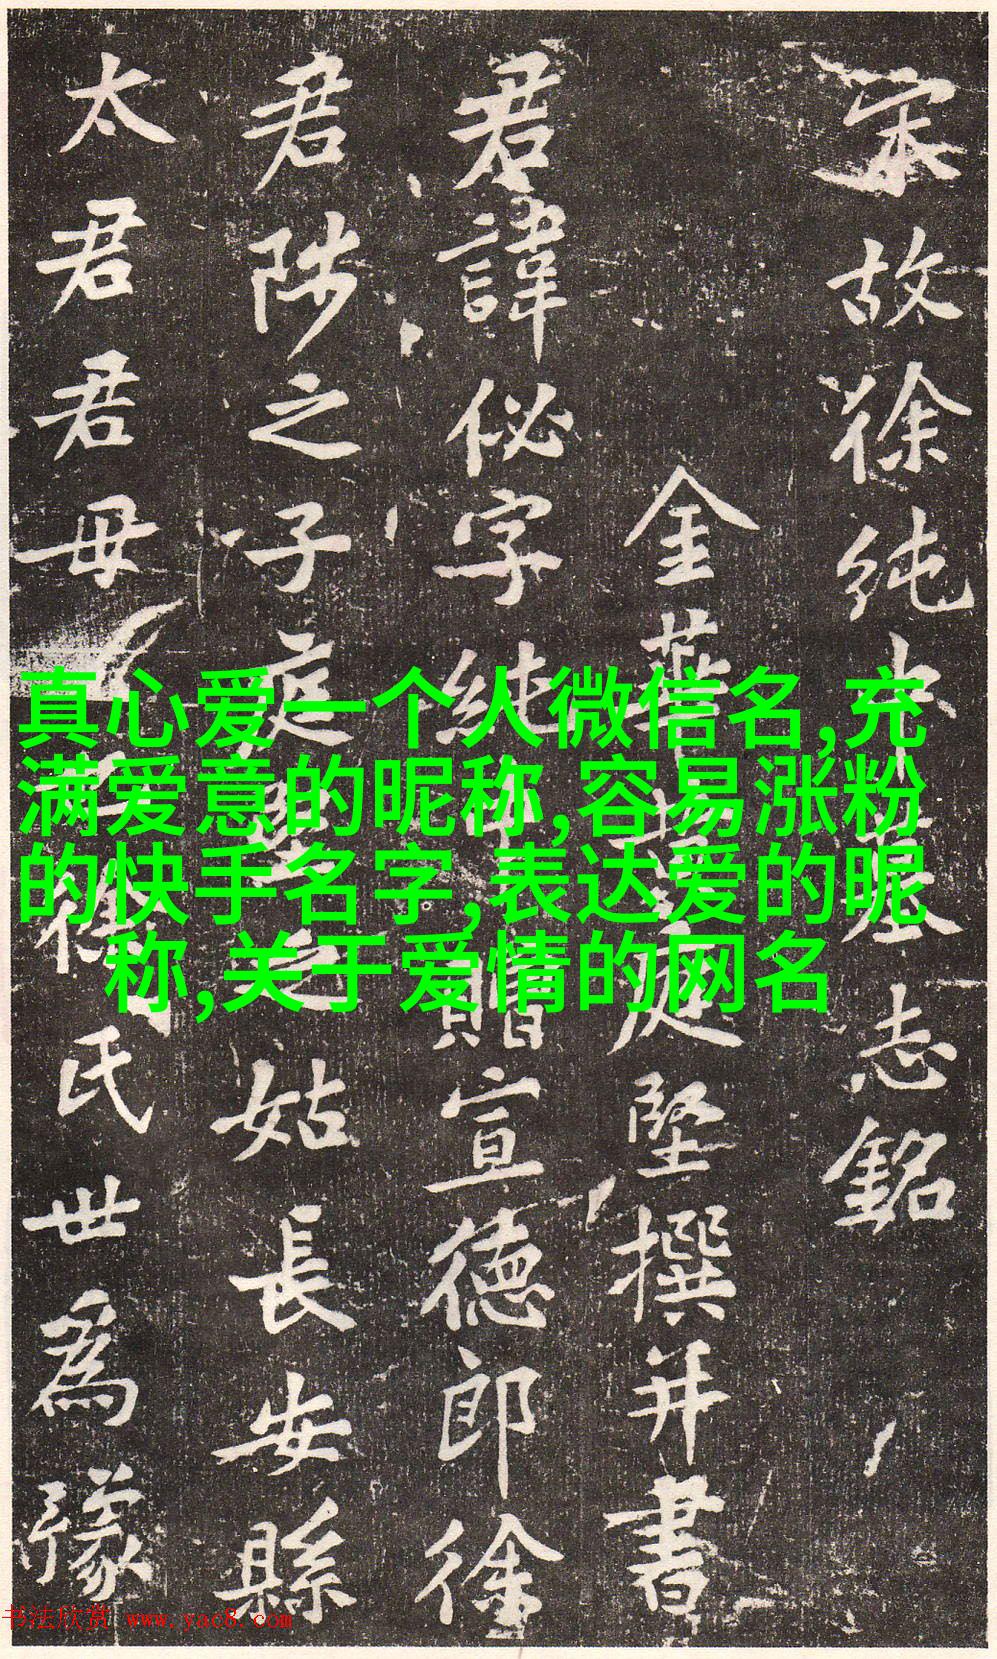 宋故徐纯中墓志銘
金華黄庭堅撰并書
君諱佖字純中贈宣德郎徐
君陟之子庭堅之姑長安縣
太君君母氏世為豫
真心爱一个人微信名,充
满爱意的昵称,容易涨粉
的快手名字,表达爱的昵
称,关于爱情的网名
书法欣赏 www.yac8.com